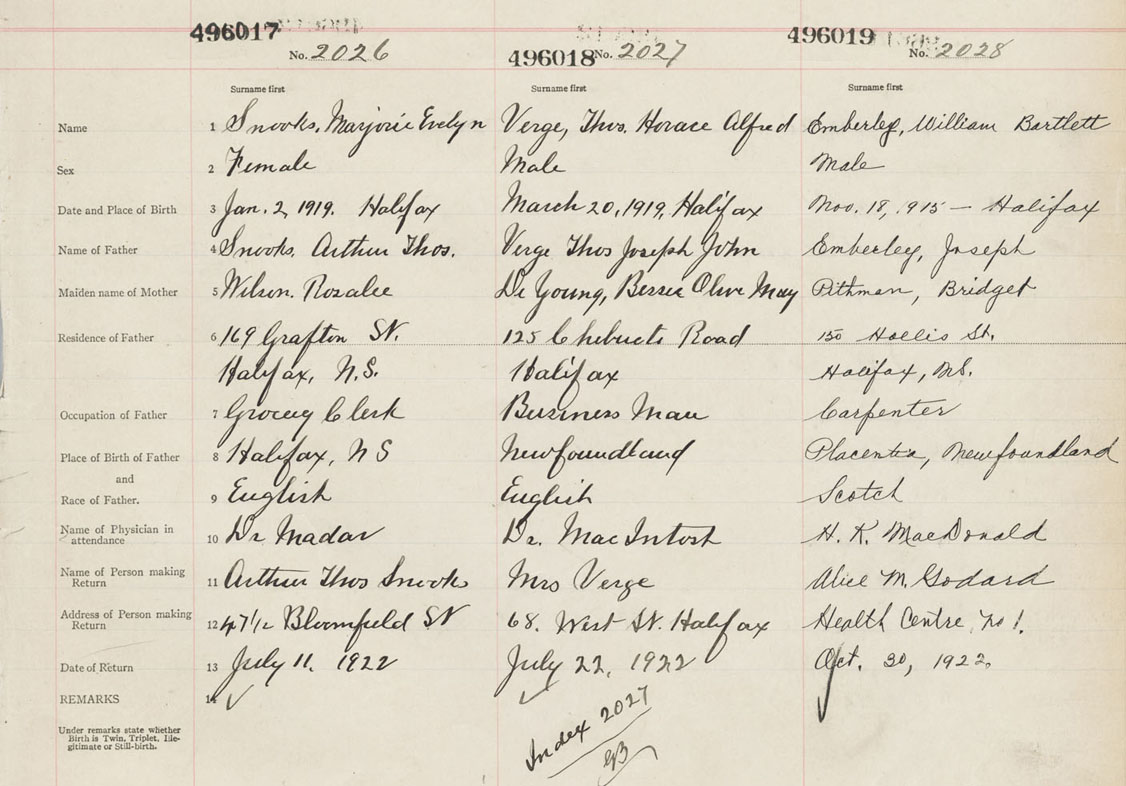 496017 496018 496019
No. 2026 No. 2027 No. 2028
Surname first Surname first Surname first
Name 1 Snooks, Marjorie Evelyn Verge, Thos. Horace Alfred Emberley, William Bartlett
Sex 2 Female Male Male
Date and Place of Birth 3 Jan. 2, 1919. Halifax March 20, 1919, Halifax Nov. 18, 1915 — Halifax
Name of Father 4 Snooks, Arthur Thos. Verge Thos Joseph John Emberley, Joseph
Maiden name of Mother 5 Wilson. Rozalee De Young, Bessie Olive May Pithman, Bridget
Residence of Father 6 169 Grafton St. 125 Chebucto Road 150 Hollis St.
Halifax, N.S. Halifax Halifax, N.S.
Occupation of Father 7 Grocery Clerk Business Man Carpenter
Place of Birth of Father 8 Halifax, N S Newfoundland Placentia, Newfoundland
and
Race of Father. 9 English English Scotch
Name of Physician in
attendance 10 Dr. Madar Dr. MacIntosh H. K. MacDonald
Name of Person making
Return 11 Arthur Thos Snooks Mrs Verge Alice M. Godard
Address of Person making
Return 12 47 1/2 Bloomfield St 68. West St. Halifax Health Centre, No 1.
Date of Return 13 July 11. 1922 July 22, 1922 Oct. 30, 1922.
REMARKS 14
Under remarks state whether
Birth is Twin, Triplet, Ille-
gitimate or Still-birth.
Index 2027